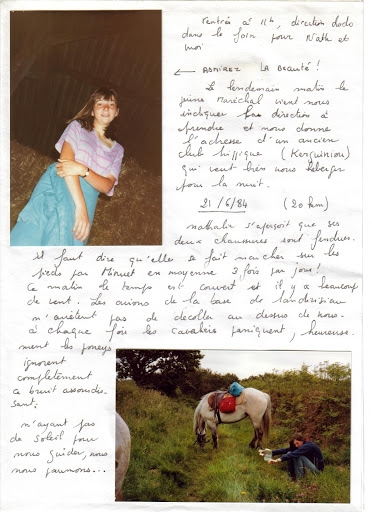 rentrés à 11h, direction dodo
dans le foin pour Nath et
moi
← ADMIREZ LA BEAUTÉ!
Le lendemain matin le
jeune Maréchal vient nous
indiquer la direction à
prendre et nous donne
l'adresse d'un ancien
club hippique (Kerguiniou)
qui veut bien nous héberger
pour la nuit.
21/6/84 (20 km)
Nathalie s'aperçoit que ses
deux chaussures sont fendues.
Il faut dire qu'elle se fait marcher sur les
pieds par en moyenne 3 fois par jour!
Ce matin le temps est couvert et il y a beaucoup
de vent. Les avions de la base de Landivisiau
n'arrêtent pas de décoller au dessus de nous.
à chaque fois les cavaliers paniquent, heureuse-
ment les poneys
ignorent
complètement
ce bruit assourdis-
sant.
n'ayant pas
de soleil pour
nous guider, nous
nous paumons...